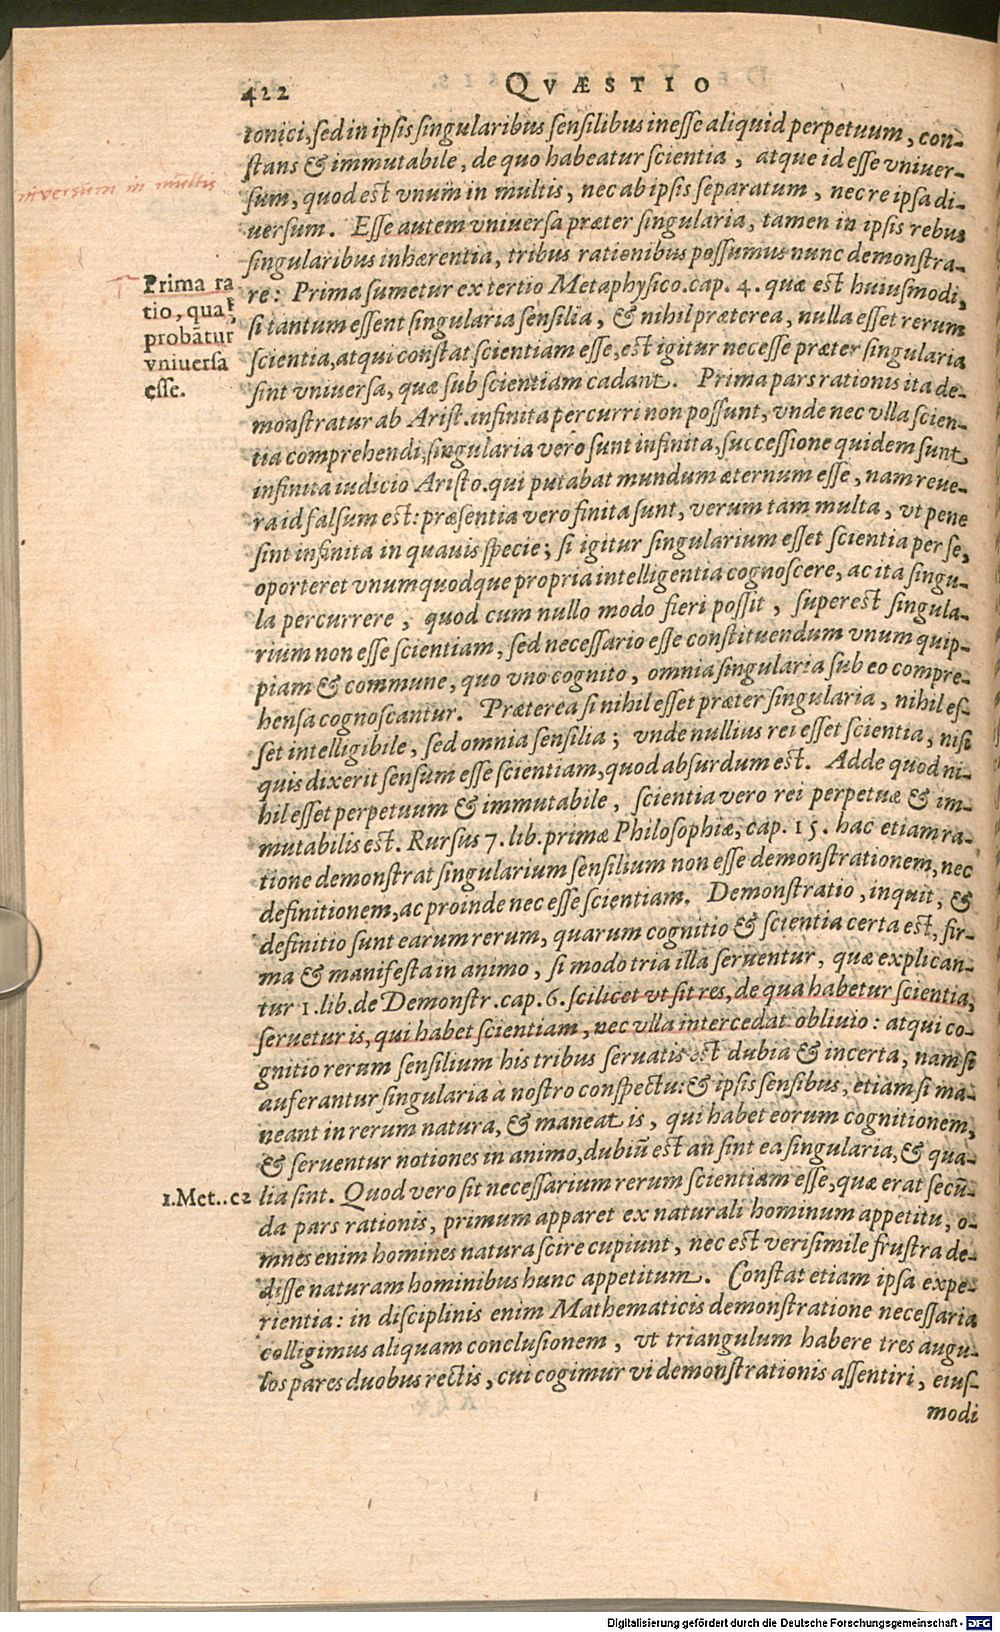 422 QVÆSTIO
tonici, sed in ipsis singularibus sensilibus inesse aliquid perpetuum, con-
stans & immutabile, de quo habeatur scientia, atque id esse vniuer-
sum, quod est vnum in multis, nec ab ipsis separatum, nec re ipsa di-
uersum. Esse autem vniuersa præter singularia, tamen in ipsis rebus
singularibus inhærentia, tribus rationibus possumus nunc demonstra-
re: Prima sumetur ex tertio Metaphysico. cap. 4. quæ est huiusmodi,
si tantum essent singularia sensilia, & nihil præterea, nulla esset rerum
scientia, atqui constat scientiam esse, est igitur necesse præter singularia
sint vniuersa, quæ sub scientiam cadant. Prima pars rationis ita de-
monstratur ab Arist. infinita percurri non possunt, vnde nec vlla scien-
tia comprehendi, singularia vero sunt infinita, successione quidem sunt
infinita iudicio Aristo. qui putabat mundum æternum esse, nam reue-
ra id falsum est: præsentia vero finita sunt, verum tam multa, vt pene
sint infinita in quauis specie; si igitur singularium esset scientia per se,
oporteret vnumquodque propria intelligentia cognoscere, ac ita singu-
la percurrere, quod cum nullo modo fieri possit, superest singula-
rium non esse scientiam, sed necessario esse constituendum vnum quip-
piam & commune, quo vno cognito, omnia singularia sub eo compre-
hensa cognoscantur. Præterea si nihil esset præter singularia, nihil es-
set intelligibile, sed omnia sensilia; vnde nullius rei esset scientia, nisi
quis dixerit sensum esse scientiam, quod absurdum est. Adde quod ni-
hil esset perpetuum & immutabile, scientia vero rei perpetuæ & im-
mutabilis est. Rursus 7. lib. primæ Philosophiæ, cap. 15. hac etiam ra-
tione demonstrat singularium sensilium non esse demonstrationem, nec
definitionem, ac proinde nec esse scientiam. Demonstratio, inquit, &
definitio sunt earum rerum, quarum cognitio & scientia certa est, fir-
ma & manifesta in animo, si modo tria illa seruentur, quæ explican-
tur 1. lib. de Demonstr. cap. 6. scilicet vt sit res, de qua habetur scientia,
seruetur is, qui habet scientiam, nec vlla intercedat obliuio: atqui co-
gnitio rerum sensilium his tribus seruatis est dubia & incerta, nam si
auferantur singularia a nostro conspectu: & ipsis sensibus, etiam si ma-
neant in rerum natura, & maneat is, qui habet eorum cognitionem,
& seruentur notiones in animo, dubiū est an sint ea singularia, & qua-
lia sint. Quod vero sit necessarium rerum scientiam esse, quæ erat secū-
da pars rationis, primum apparet ex naturali hominum appetitu, o-
mnes enim homines natura scire cupiunt, nec est verisimile frustra de-
disse naturam hominibus hunc appetitum. Constat etiam ipsa expe-
rientia: in disciplinis enim Mathematicis demonstratione necessaria
colligimus aliquam conclusionem, vt triangulum habere tres angu-
los pares duobus rectis, cui cogimur vi demonstrationis assentiri, eius-
modi
in multis
Prima ra
tio, qua
probātur
vniuersa
esse.
1.Met..c2
Digitalisierung gefördert durch die Deutsche Forschungsgemeinschaft - DFG